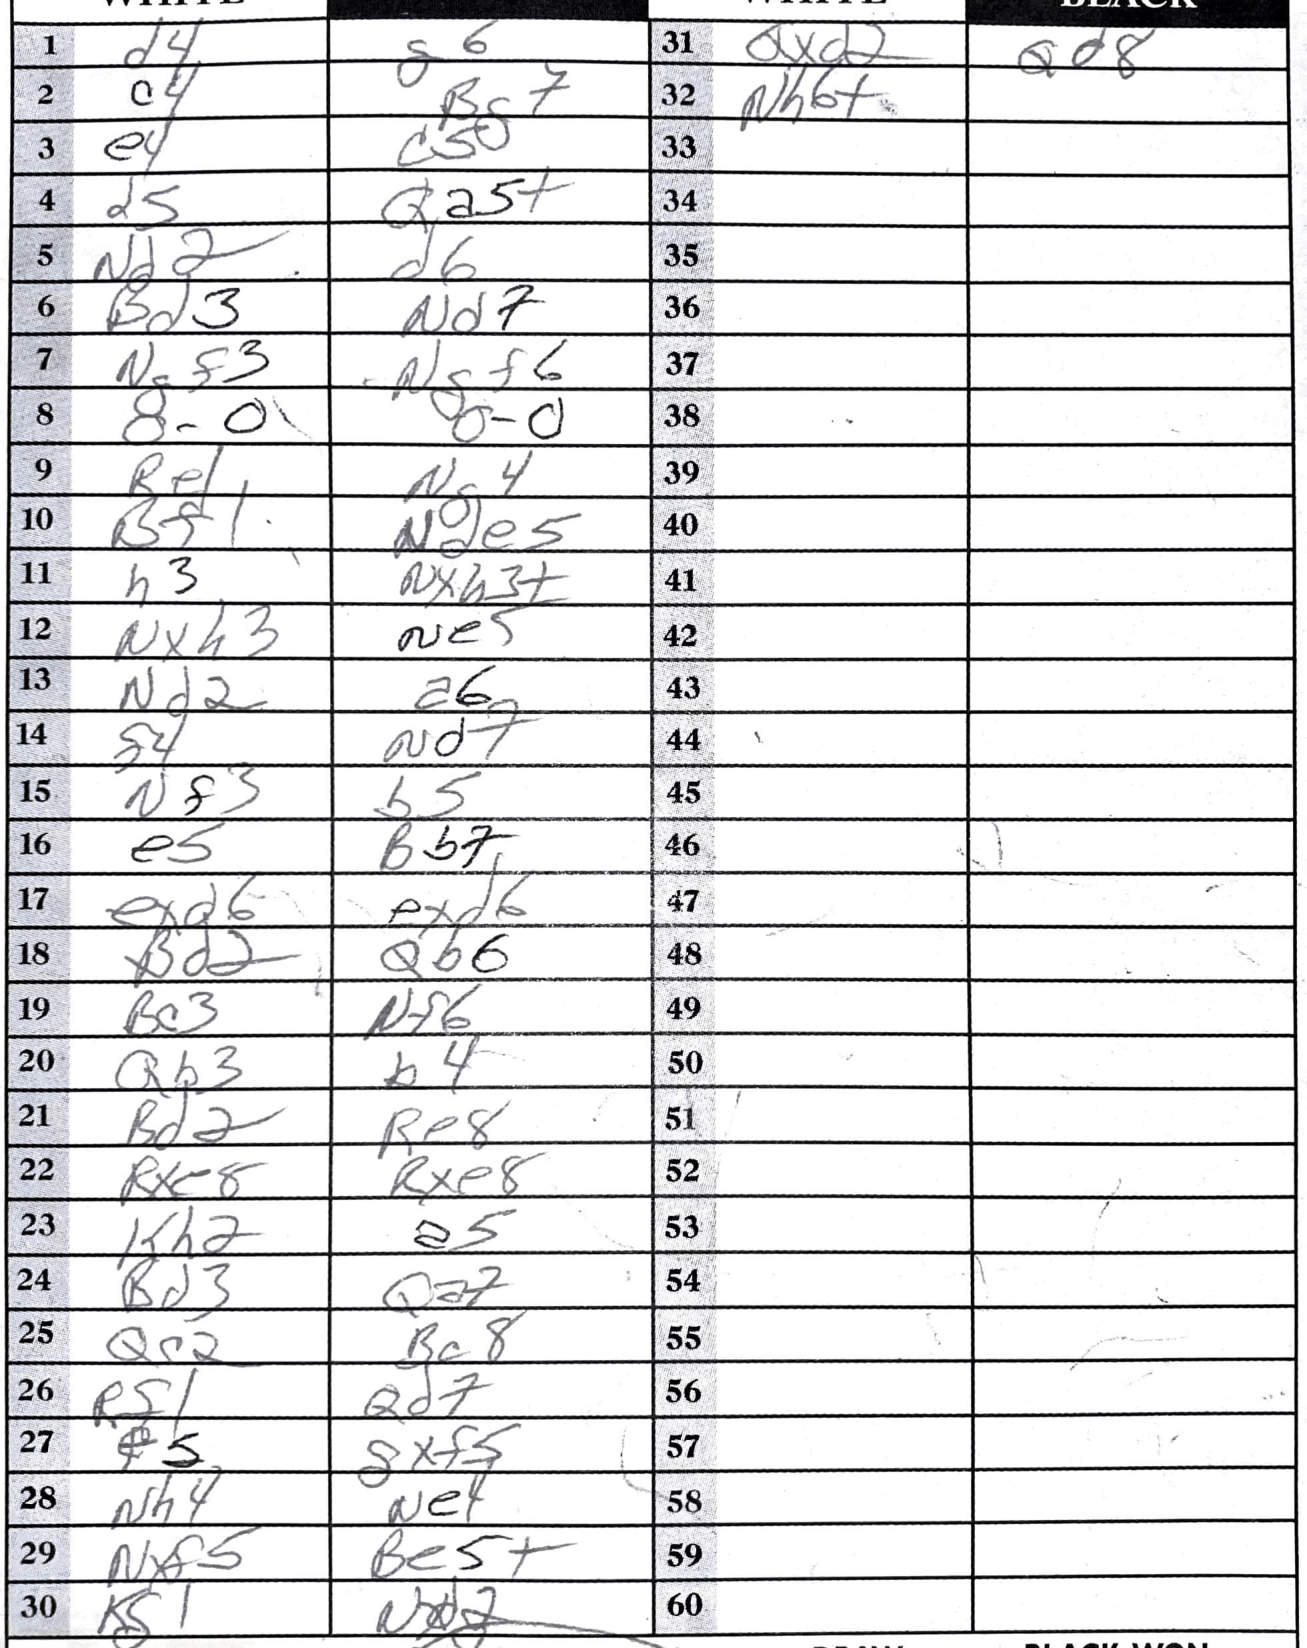 WHITE WHITE BLACK
1 d4 g6 31 Qxd2 Qd8
2 c4 Bg7 32 Nh6+
3 e4 c5 33
4 d5 Qa5+ 34
5 Nd2 d6 35
6 Bd3 Nd7 36
7 Ngf3 Ngf6 37
8 0-0 0-0 38
9 Re1 Ng4 39
10 Bf1 Nde5 40
11 h3 Nxh3+ 41
12 Nxh3 Ne5 42
13 Nd2 a6 43
14 f4 Nd7 44
15 Nf3 b5 45
16 e5 Bb7 46
17 exd6 exd6 47
18 Bd2 Qb6 48
19 Bc3 Nf6 49
20 Qb3 b4 50
21 Bd2 Re8 51
22 Rxe8 Rxe8 52
23 Kh2 a5 53
24 Bd3 Qa7 54
25 Qc2 Bc8 55
26 Rf1 Qd7 56
27 f5 gxf5 57
28 Nh4 Ne4 58
29 Nxf5 Be5+ 59
30 Kg1 Nxd2 60
DRAW BLACK WON